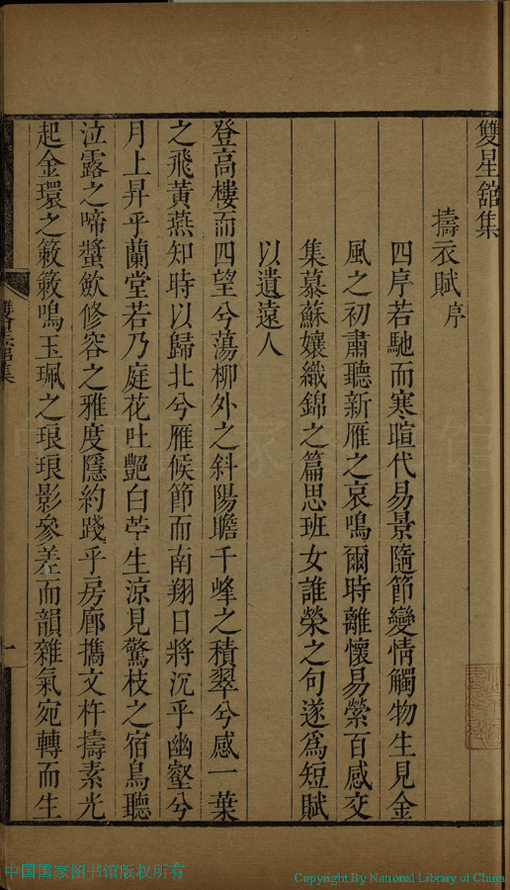 雙星舘集
擣衣賦序
四序若馳而寒暄代易景隨節變情觸物生見金
風之初肅聽新雁之哀鳴爾時離懷易縈百感交
集慕蘇孃織錦之篇思班女誰榮之句遂爲短賦
以遺遠人
登高樓而四望兮蕩柳外之斜陽瞻千峰之積翠兮感一葉
之飛黃燕知時以歸北兮雁候節而南翔日將沉乎幽壑兮
月上昇乎蘭堂若乃庭花吐艷白苧生涼見驚枝之宿鳥聽
泣露之啼螿歛修容之雅度隱約踐乎房廊攜文杵擣素光
起金環之簌簌鳴玉珮之琅琅影參差而韻雜氣宛轉而生
雙星舘集
一
中国国家图书馆版权所有
Copyright By National Library of China